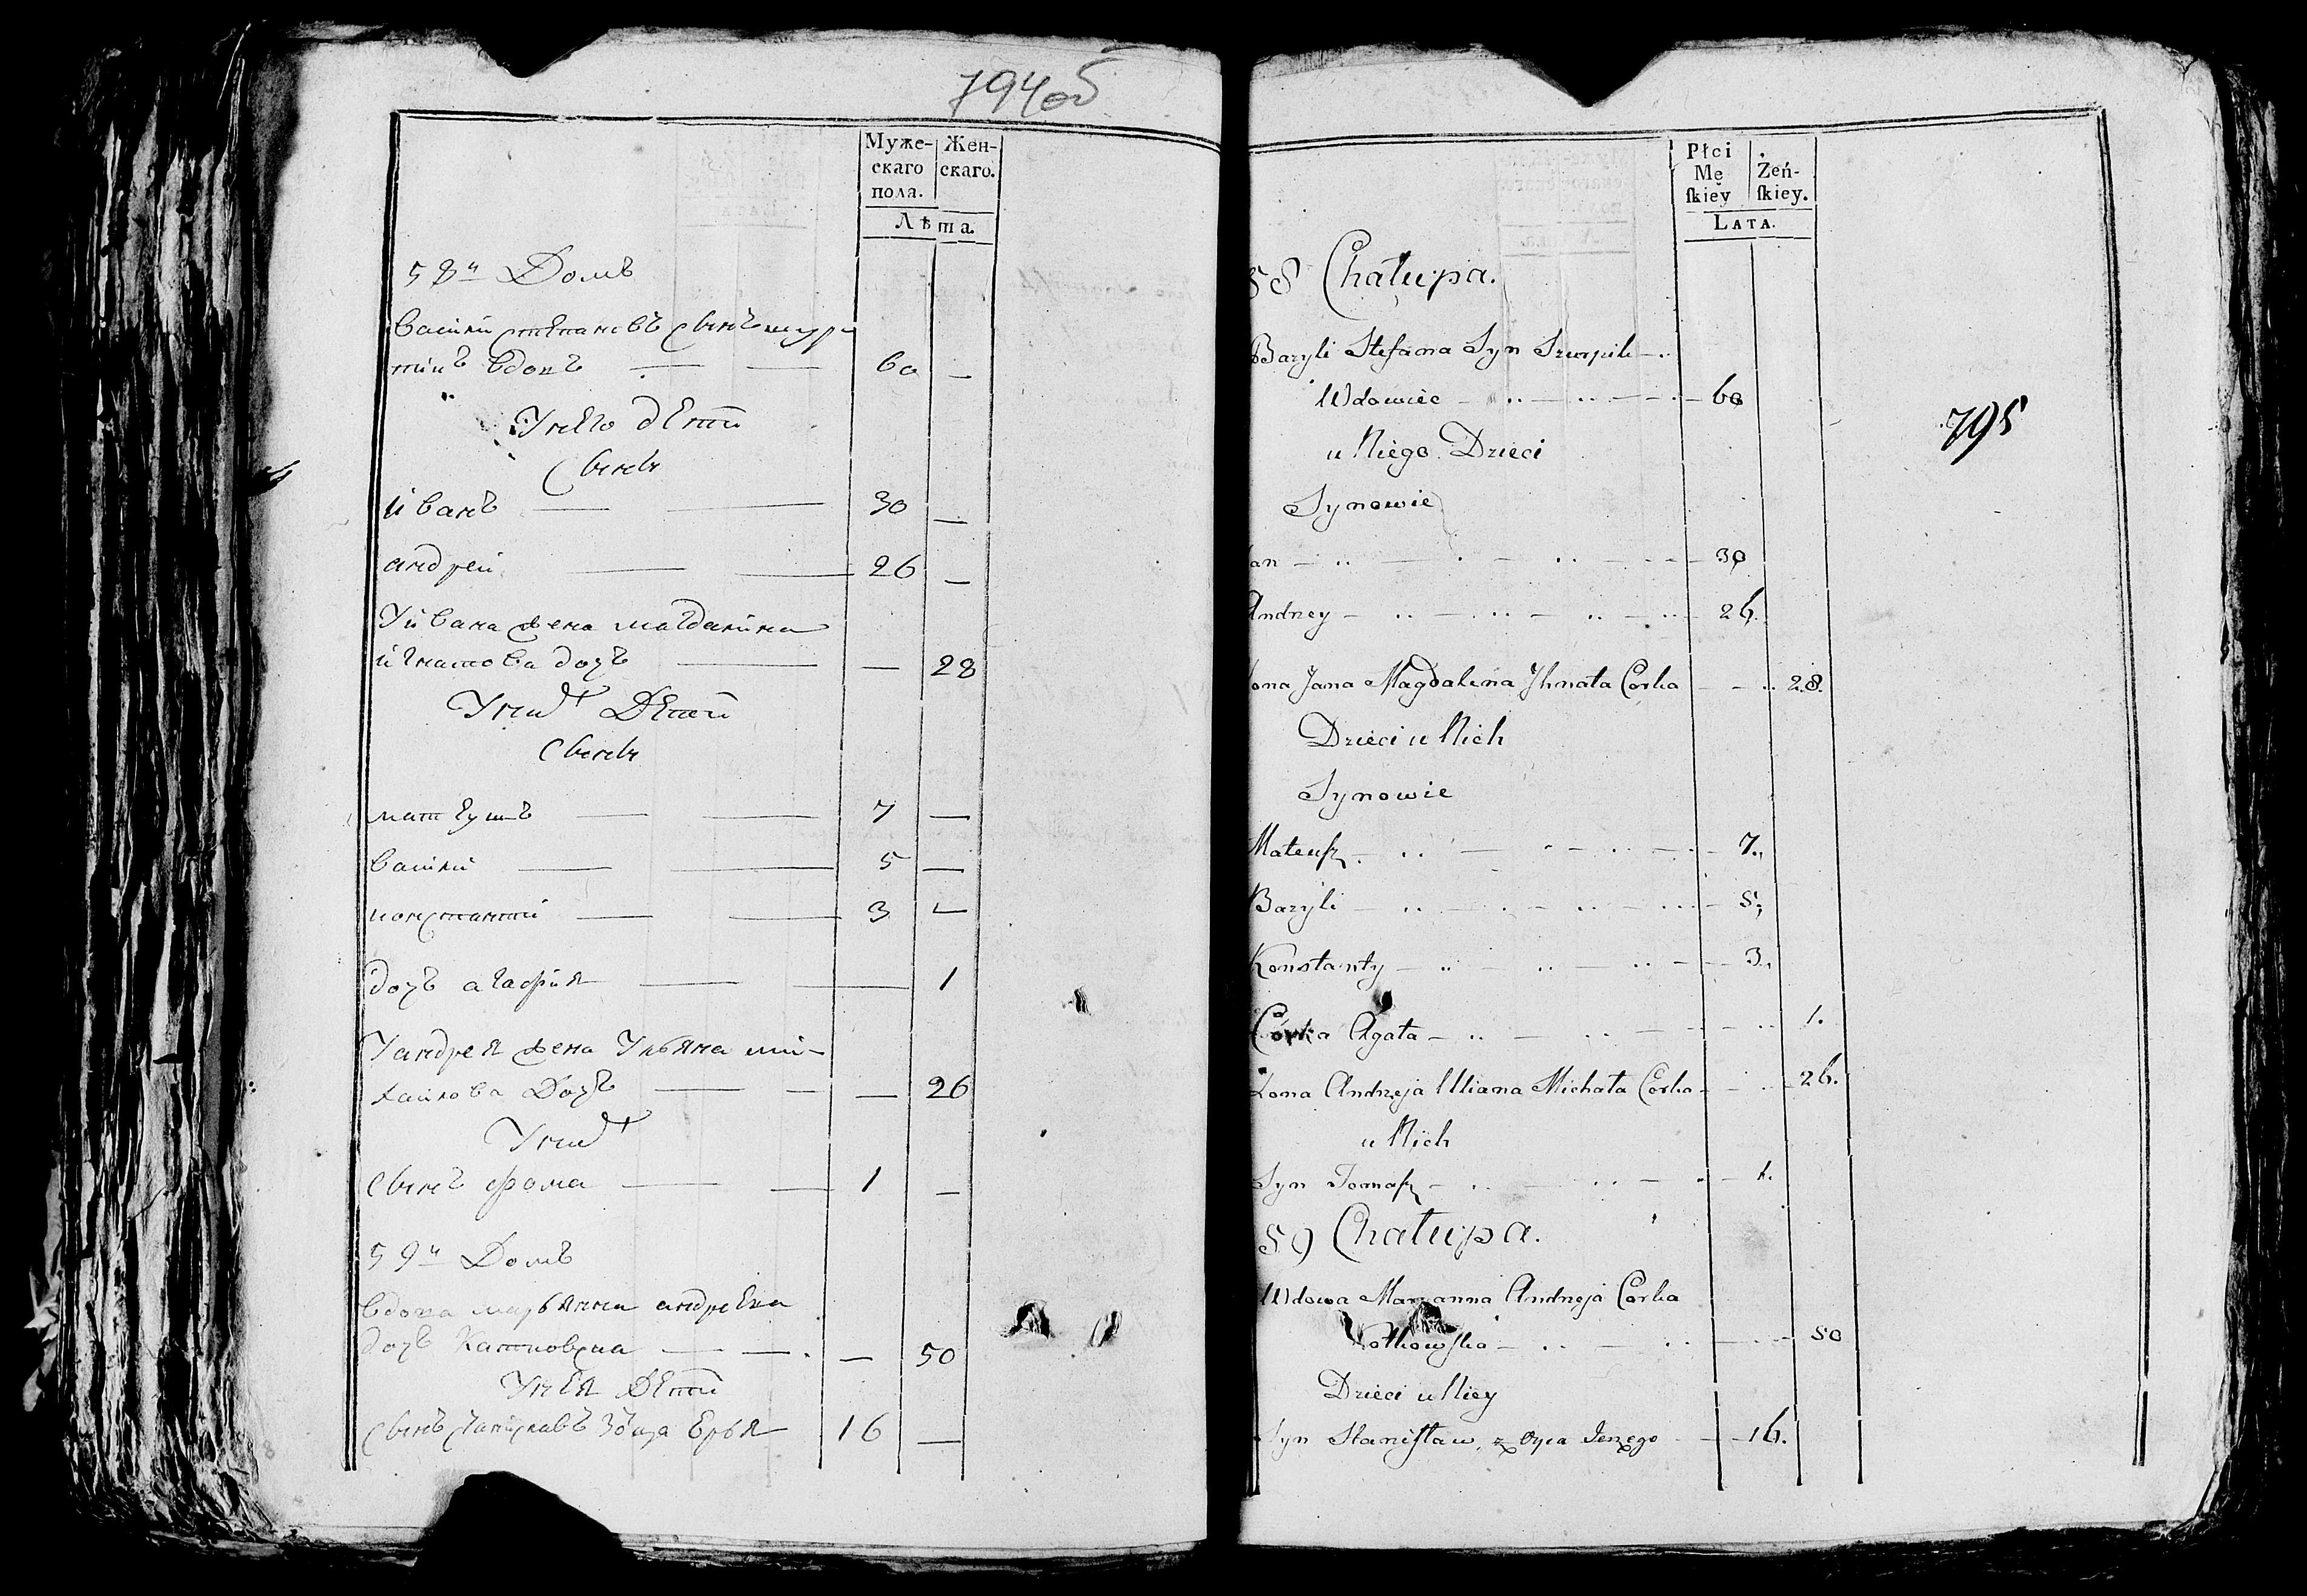 794об
Муже-
скаго
пола.
Жен-
скаго.
Лѣта.
58й Домъ
василий степановъ сынъ
вдовъ 60 —
У него дѣти
сыны
иванъ 30 —
андрей 26 —
У ивана жена магдалина
игнатова дочь — 28
У них дѣти
сыны
матеушъ 7 —
василий 5 —
константий 3 —
дочь агафия 1
У андрея жена Ульяна ми-
хайлова Дочь — 26
У них
сынъ фома 1 —
59й Домъ
вдова марьянна андреева
дочь — 50
У нея дѣти
сынъ станиславъ 16 —
Płci
Mę
ſkiey
Żeń-
ſkiey.
Lata.
58 Chałupa.
Bazyli Stefana Syn
Wdowiec 60
u Niego Dzieci
Synowie
an 30
Andrzey 26.
ona Jana Magdalena Ihnata Corka 28.
Dzieci u Nich
Synowie
Mateuſz 7.
Bazyli 5;
Konstanty 3.
Córka Agata 1.
Żona Andrzeja Uliana Michała Corka 26.
u Nich
Syn Tomaſz 1.
59 Chałupa.
Wdowa Maryanna Andrzeja Corka
Kotkowſka 50
Dzieci u Niey
Syn Staniſław, z Oyca Jerzego 16.
795